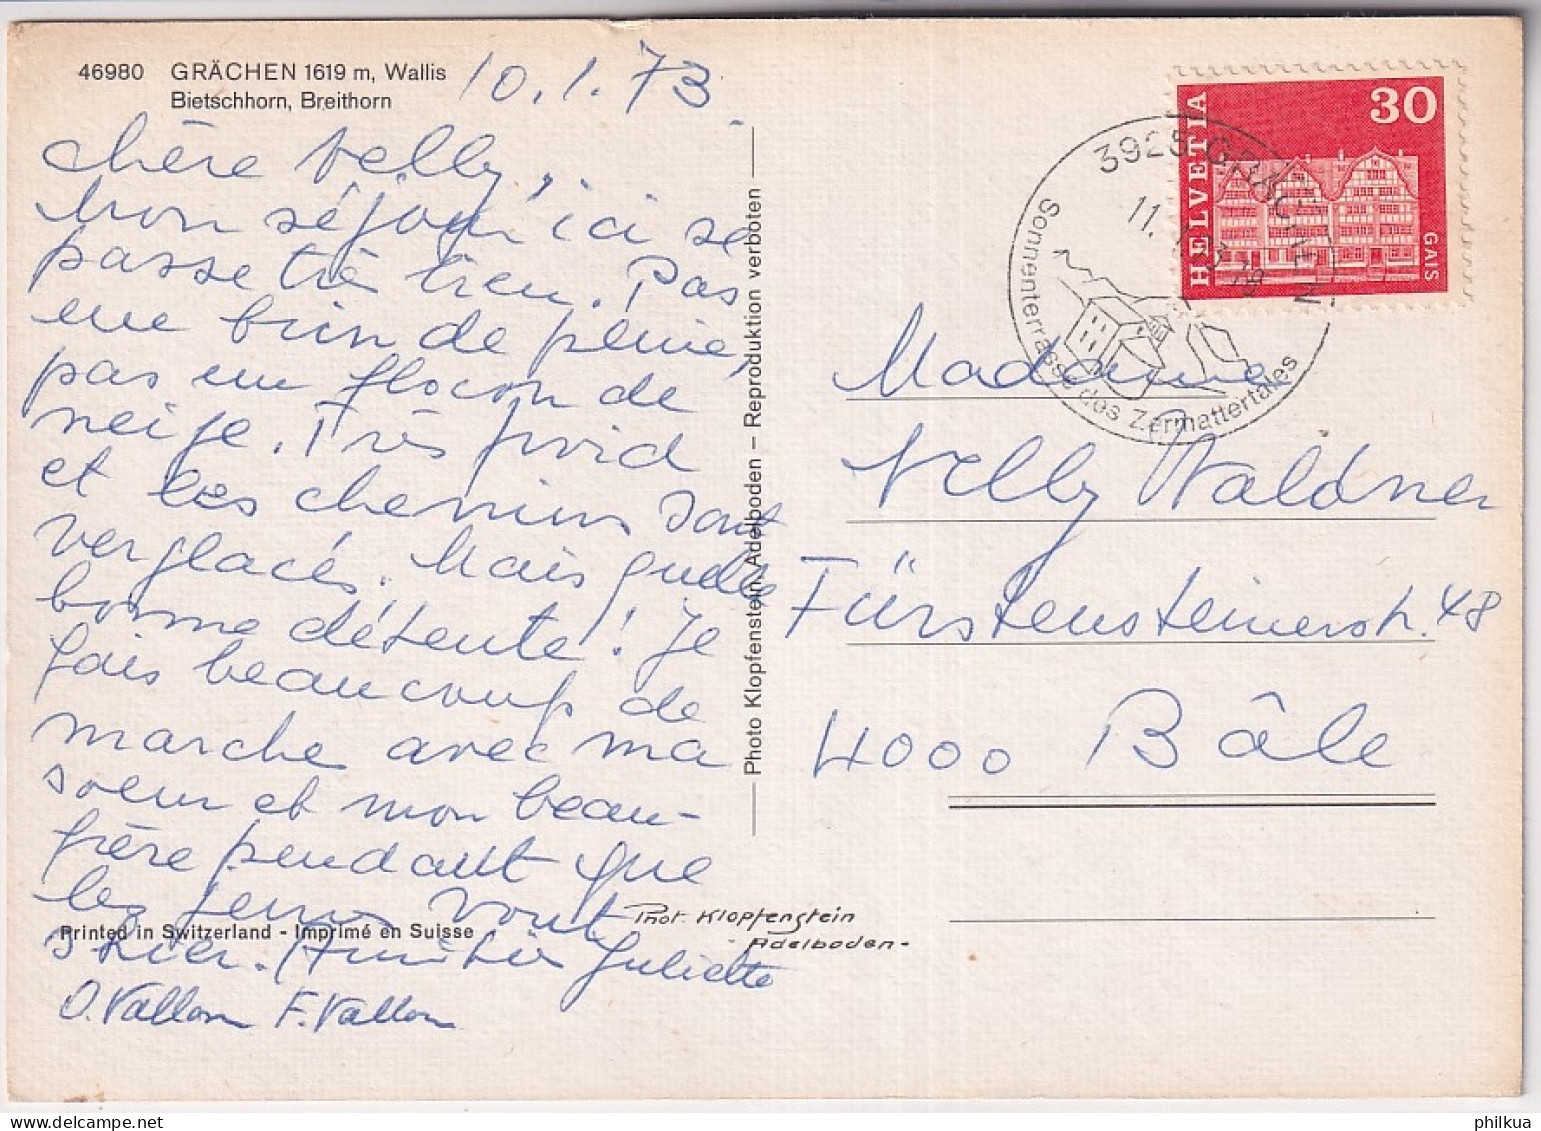 46980 GRÄCHEN 1619 m, Wallis
Bietschhorn, Breithorn
10.1.73
Chère Nelly,
mon séjour ici se
passe très bien. Pas
une brin de pluie,
pas un flocon de
neige. Très froid
et les chemins sont
verglacés. Mais quelle
bonne détente! Je
fais beaucoup de
marche avec ma
soeur et mon beau-
frère pendant que
les jeunes vont
skier. Amitiés Juliette
O. Vallon F. Vallon
Printed in Switzerland - Imprimé en Suisse
Phot. Klopfenstein
Adelboden-
Photo Klopfenstein, Adelboden – Reproduktion verboten
HELVETIA
30
GAIS
3925 GRÄCHEN
11. 1.73-18
Sonnenterrasse des Zermattertales
Madame
Nelly Waldner
Fürstensteinerstr. 48
4000 Bâle
philkua